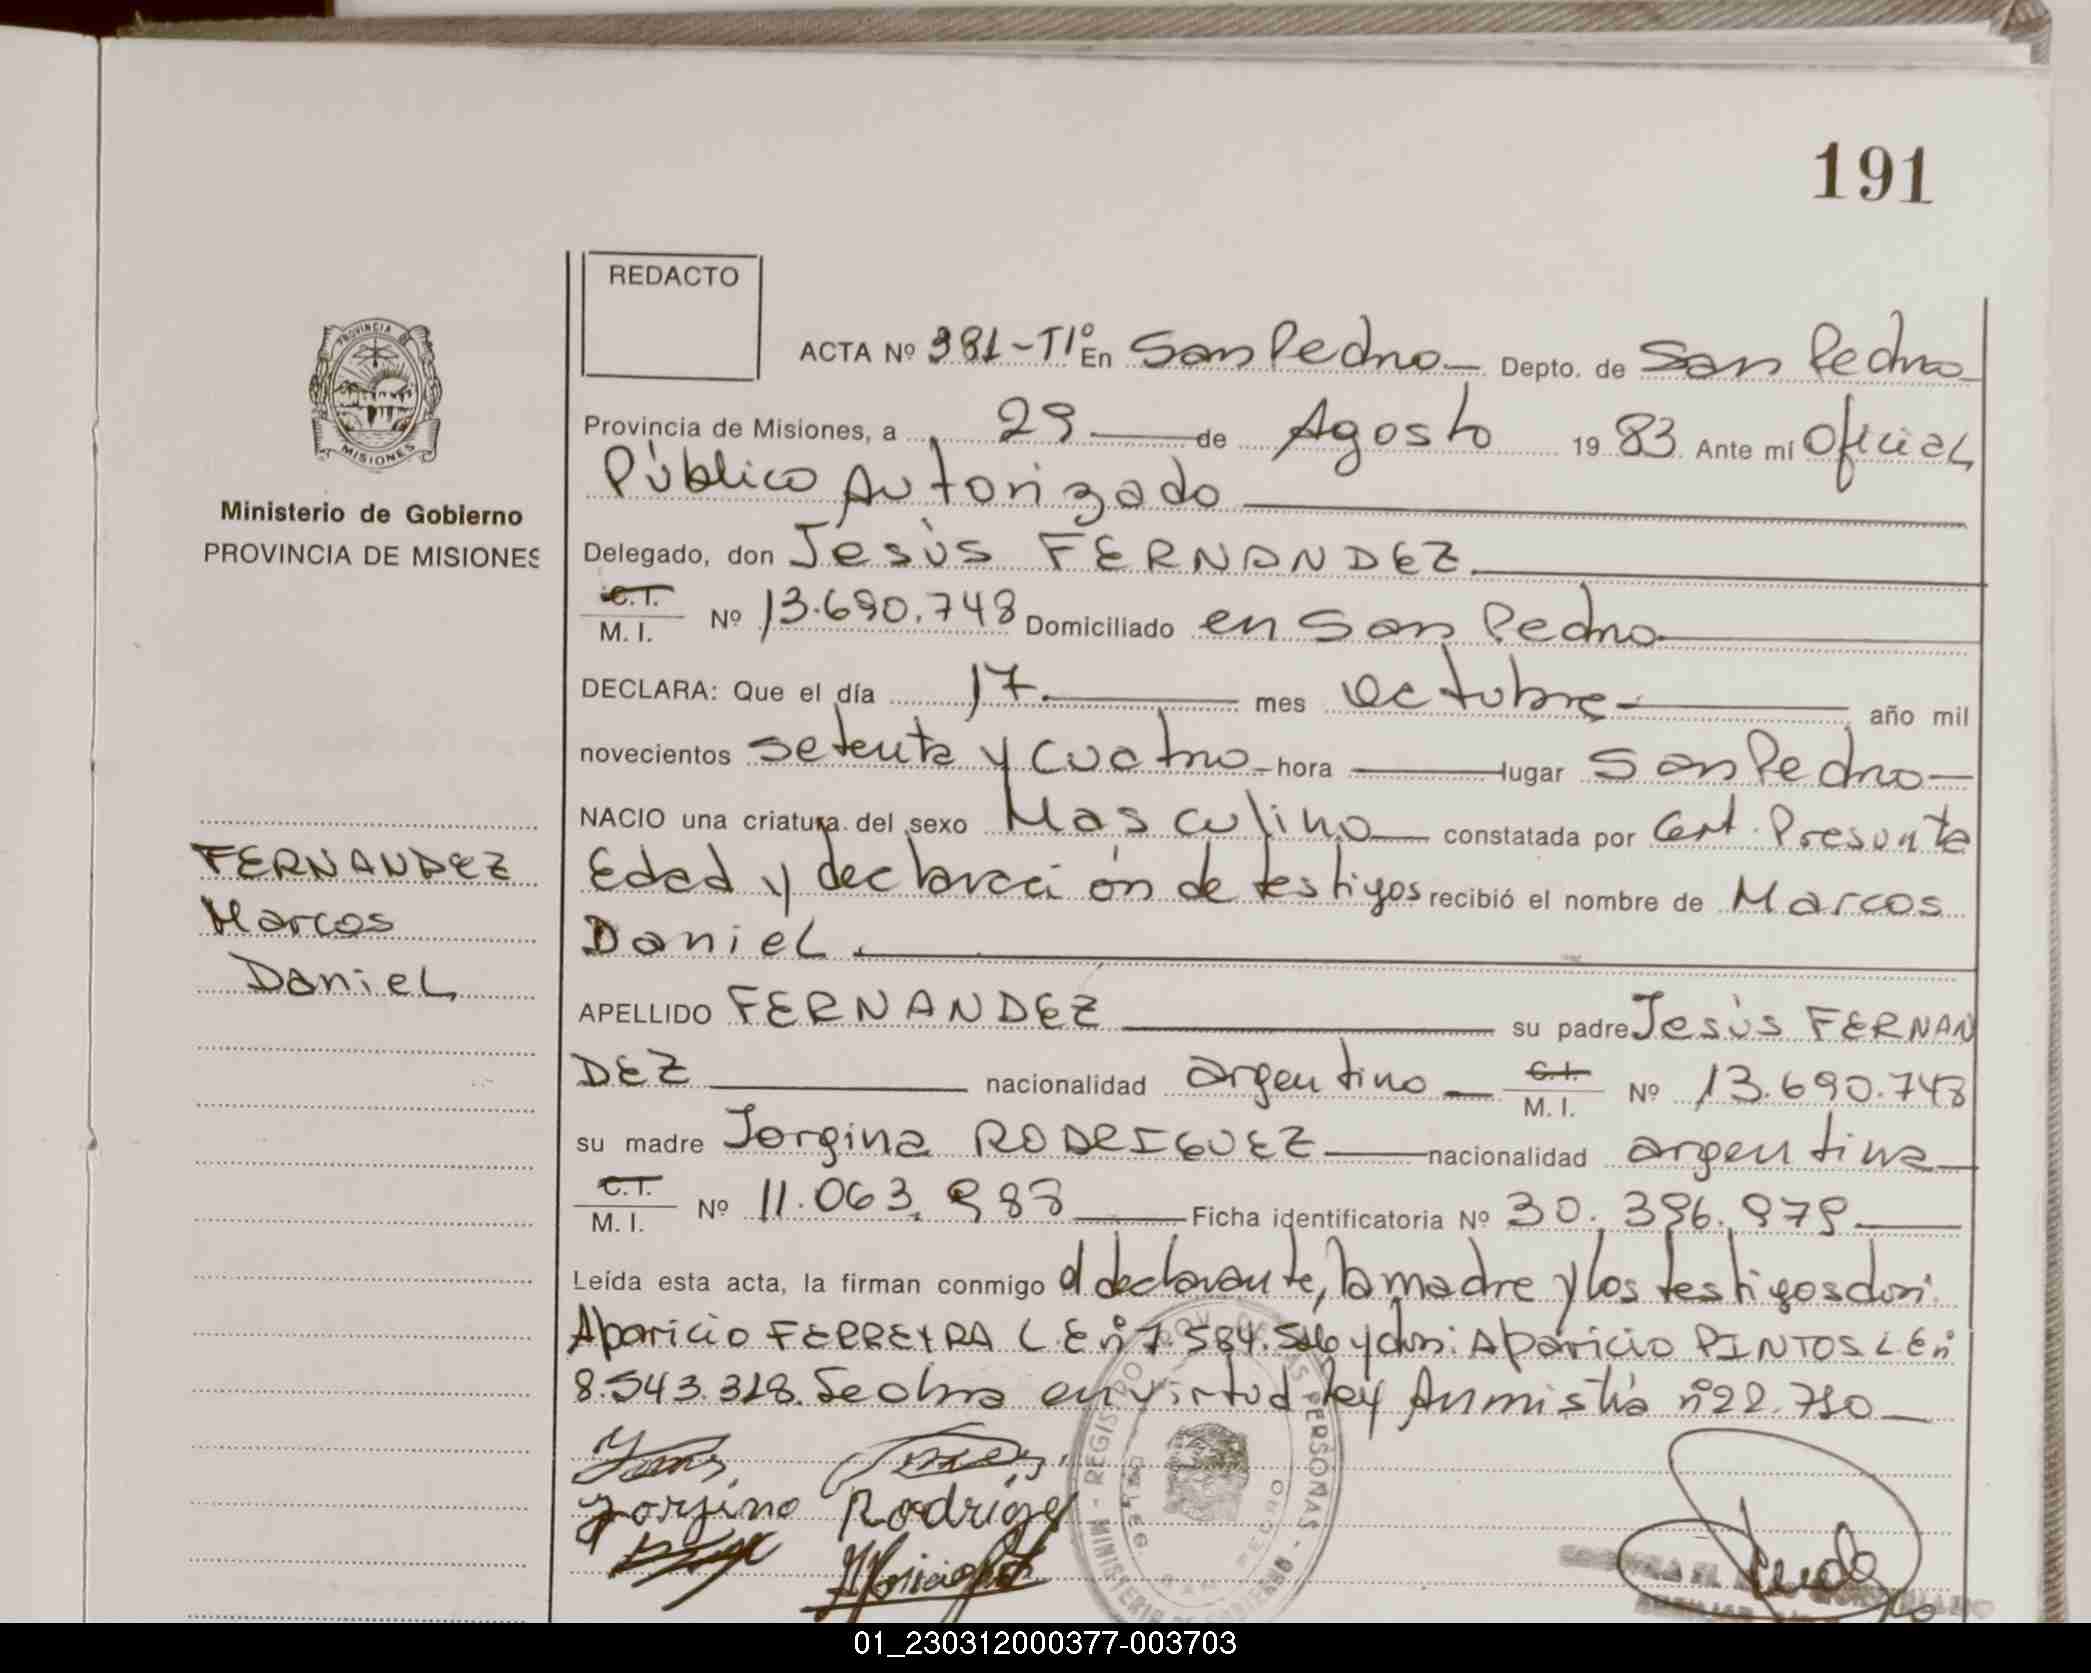 191
REDACTO
PROVINCIA
MISIONES
Ministerio de Gobierno
PROVINCIA DE MISIONES
ACTA Nº 381-Tlº En San Pedro Depto. de San Pedro
Provincia de Misiones, a 29 de Agosto 1983. Ante mí Oficial
Público Autorizado
Delegado, don Jesús FERNANDEZ
C.I. M. I. Nº 13.690.748 Domiciliado en San Pedro
DECLARA: Que el día 17 mes octubre año mil
novecientos setenta y cuatro hora lugar San Pedro
NACIO una criatura del sexo Masculino constatada por Cert. Presunta
Edad y declaración de testigos recibió el nombre de Marcos
Daniel
FERNANDEZ
Marcos
Daniel
APELLIDO FERNANDEZ su padre Jesús FERNAN
DEZ nacionalidad argentino C.I. M. I. Nº 13.690.748
su madre Jorgina RODRIGUEZ nacionalidad argentina
C.I. M. I. Nº 11.063.988 Ficha identificatoria Nº 30.396.979
Leída esta acta, la firman conmigo el declarante, la madre y los testigos don:
Aparicio FERREYRA L E nº 7.584.546 y don: Aparicio PINTOS L E nº
8.543.328. Se obra en virtud ley Anmistía nº 22.710
Jorjina Rodrigez
REGISTRO PROV. DE LAS PERSONAS - MINISTERIO DE GOBIERNO
SAN PEDRO
01_230312000377-003703